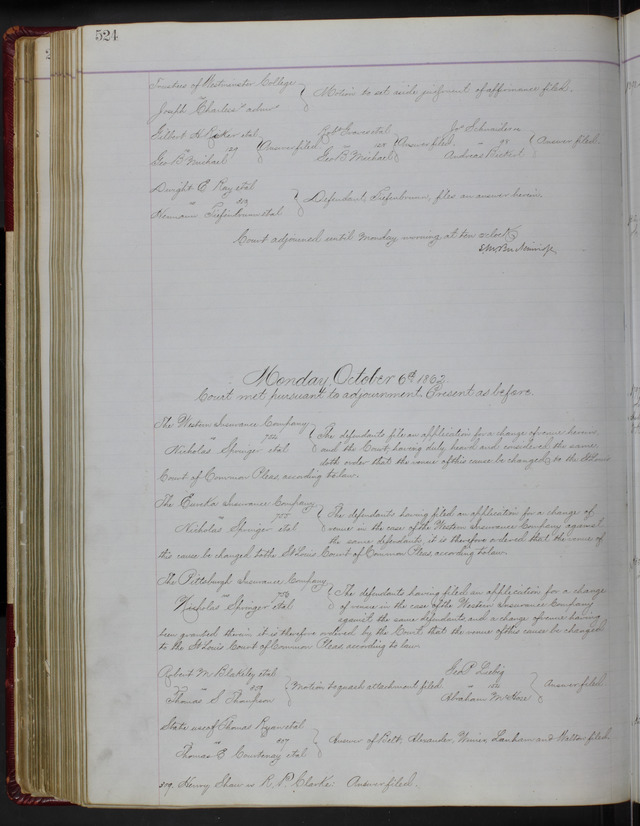 524
Trustees of Westminster College
vs
Joseph Charless admr
Motion to set aside judgment of affirmance filed.
Gilbert et al
vs 129
Geo B Michael
Answer filed
Robt Graves et al
vs 128
Geo B. Michael
Answer filed.
Jos Schnaider
vs 98
Andreas
Answer filed.
Dwight E Ray et al
vs 813
Hermann Tiefenbrunn et al
Defendant, Tiefenbrunn, files an answer herein.
Court adjourned until Monday morning at ten o'clock
Monday, October 6th 1862
Court met pursuant to adjournment. Present as before.
The Western Insurance Company
vs
Nicholas Springer et al
The defendants file an application for a change of venue herein
and the Court having duly heard and considered the same
doth order that the venue of this cause be changed to the St Louis
Court of Common Pleas, according to law.
The Eureka Insurance Company
vs
Nicholas Springer et al
The defendants having filed an application for a change of
venue in the case of the Western Insurance Company against
the same defendants, it is therefore ordered that the venue of
this cause be changed to the St Louis Court of Common Pleas, according to law.
The Pittsburgh Insurance Company
vs
Nicholas Springer et al
The defendants having filed an application for a change
of venue in the case of the Western Insurance Company
against the same defendants and a change of venue having
been granted therein it is therefore ordered by the Court, that the venue of this cause be changed
to the St Louis Court of Common Pleas, according to law.
Robert M Blakeley et al
vs
Thomas S Thompson
Motion to quash attachment filed
Geo P Liebig
vs
Abraham
Answer filed.
State use of Thomas Ryan et al
vs
Thomas B Courtenay et al
Answer of Bett, Alexander, Lanham and Walton filed.
Henry Shaw vs R. P. Clarke. Answer filed.